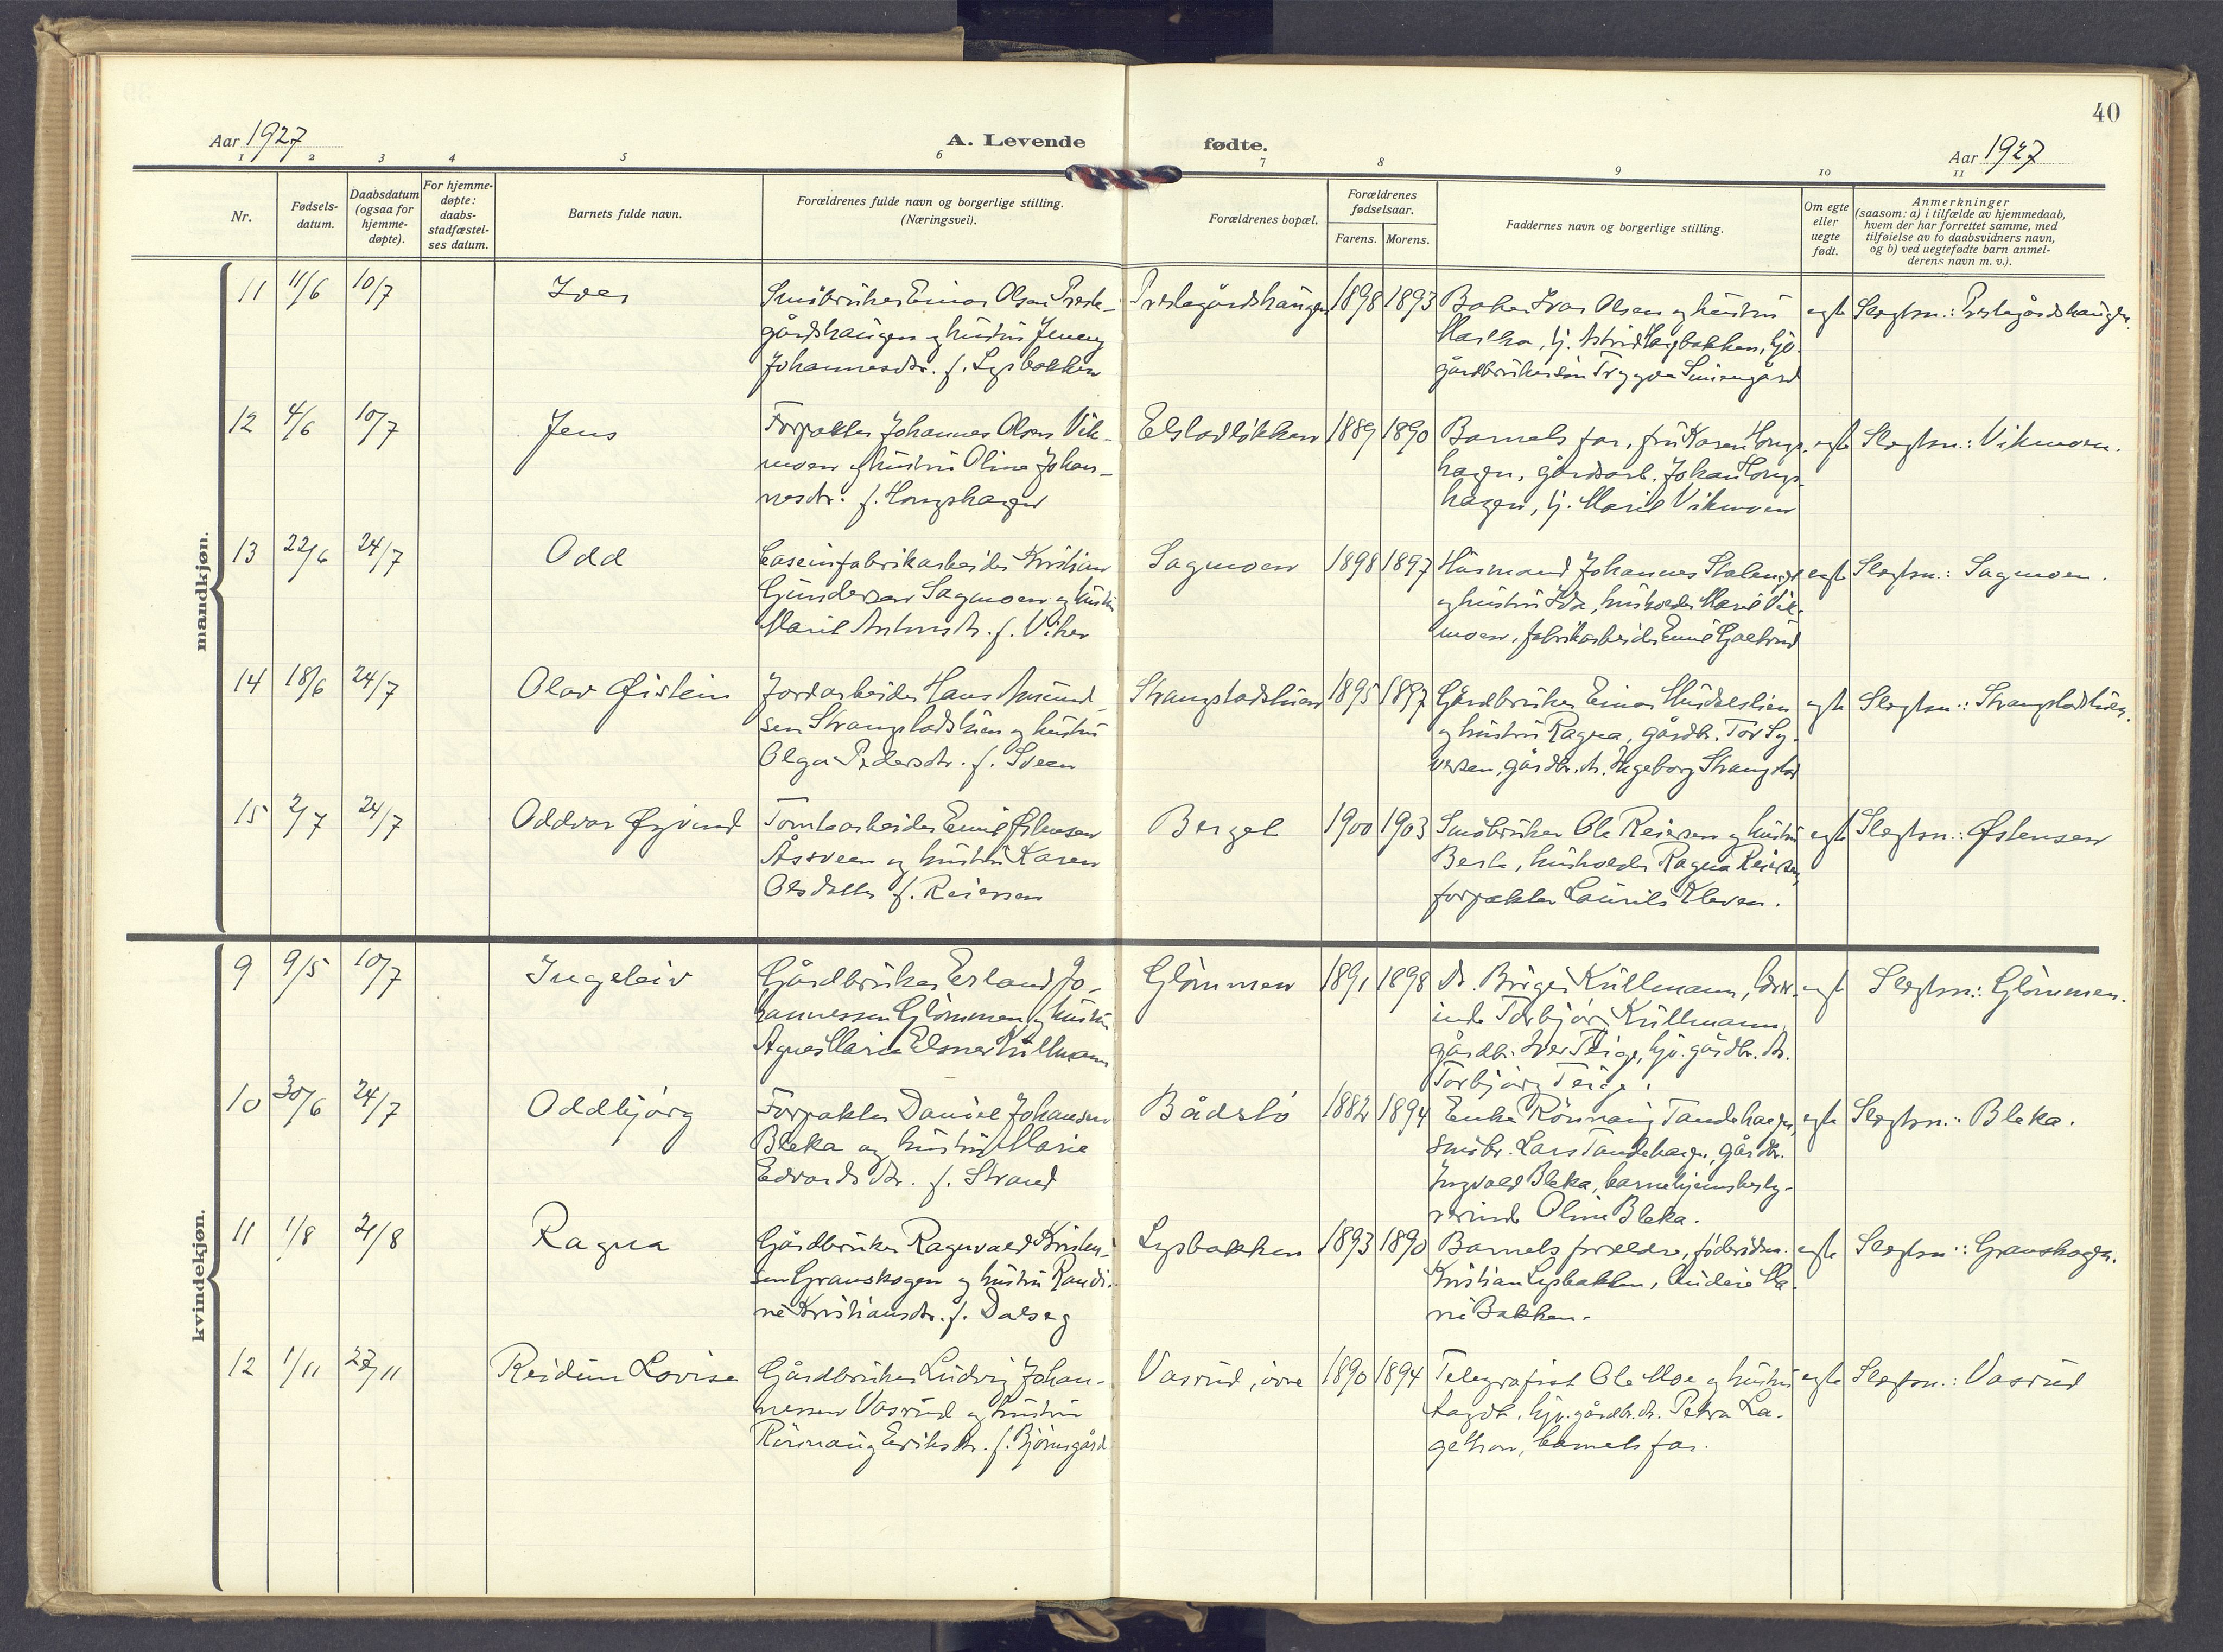 40
Aar 1927
A. Levende fødte.
Aar 1927
1 2 3 4 5 6 7 8 9 10 11
Nr.
Fødsels-
datum.
Daabsdatum
(ogsaa for
hjemme-
døpte).
For hjemme-
døpte:
daabs-
stadfæstel-
ses datum.
Barnets fulde navn.
Forældrenes fulde navn og borgerlige stilling.
(Næringsvei).
Forældrenes bopæl.
Forældrenes
fødselsaar.
Farens. Morens.
Faddernes navn og borgerlige stilling.
Om egte
eller
uegte
født.
Anmerkninger
(saasom: a) i tilfælde av hjemmedaab,
hvem der har forrettet samme, med
tilføielse av to daabsvidners navn,
og b) ved uegtefødte barn anmel-
derens navn m. v.).
mandkjøn.
11 11/6 10/7 Iver
Småbruker Einar Olsen Preste-
gårdshaugen og hustru Jenny
Johannesdtr. f. Lysbakken
Prestegårdshaugen 1898 1893
Baker Ivar Olsen og hustru
Martha, tj. Astrid Lysbakken, hjv.
gårdbrukersøn Trygve Simengård
egte Slegtsn.: Prestegårdshaugen.
12 4/6 10/7 Jens
Forpakter Johannes Olsen Vik-
moen og hustru Oline Johan-
nesdtr. f. Hongshagen
Elstadløkken 1889 1890
Barnets far, fru Karen Hongs-
hagen, gårdsarb. Johan Hongs-
hagen, tj. Marit Vikmoen
egte Slegtsn.: Vikmoen.
13 22/6 24/7 Odd
Caseinfabrikarbeider Kristian
Gundersen Sagmoen og hustru
Marit Antonsdtr. f. Viker
Sagmoen 1898 1897
Husmand Johannes
og hustru Ida, husholder Marit Vik-
moen, fabrikarbeider Emil Gaalsrud
egte Slegtsn.: Sagmoen.
14 18/6 24/7 Olav Øistein
Jordarbeider Hans Amund-
sen Strangstadstuen og hustru
Olga Pedersdtr. f. Sveen
Strangstadstuen 1895 1897
Gårdbruker Einar
og hustru Ragna, gårdbr. Tor Sy-
versen, gårdbr.dtr. Ingeborg Strangstad
egte Slegtsn.: Strangstadstuen.
15 2/7 24/7 Oddvar Øyvind
Tomtearbeider Emil Østensen
Åssveen og hustru Karen
Olsdatter f. Reiersen
Berget 1900 1903
Småbruker Ole Reiersen og hustru
Berte, husholder Ragna Reiersen,
forpakter Laurits Kleven.
egte Slegtsn.: Østensen
kvindekjøn.
9 9/5 10/7 Ingeleiv
Gårdbruker Erland Jo-
hannessen Glømmen og hustru
Agnes Marie Elsner Kullmann
Glømmen 1891 1898
Dr. Birger Kullmann,
Torbjør Kullmann,
gårdbr. Iver Teige, hjv. gårdbr. dtr.
Torbjørg Teige.
egte Slegtsn.: Glømmen.
10 30/6 24/7 Oddbjørg
Forpakter Daniel Johansen
Bleka og hustru Marie
Edvardsdtr. f. Strand
Bådstø 1882 1894
Enke Rønnaug Tandehagen,
småbr. Lars Tandehagen, gårdbr.
Ingvald Bleka, barnehjemsbesty-
rerinde Oline Bleka.
egte Slegtsn.: Bleka.
11 1/8 21/8 Ragna
Gårdbruker Ragnvald Kristen-
sen Granskogen og hustru Randi-
ne Kristiansdtr. f. Dalseg
Lysbakken 1893 1890
Barnets forældre, føderådsm.
Kristian Lysbakken, Ma-
rie Bakken.
egte Slegtsn.: Granskogen.
12 1/11 27/11 Reidun Lovise
Gårdbruker Ludvig Johan-
nessen Vasrud og hustru
Rønnaug Eriksdtr. f. Bjørnsgård
Vasrud, øvre 1890 1894
Telegrafist Ole Moe og hustru
Magda, hjv. gårdbr. dtr. Petra La-
gethon, barnets far.
egte Slegtsn.: Vasrud